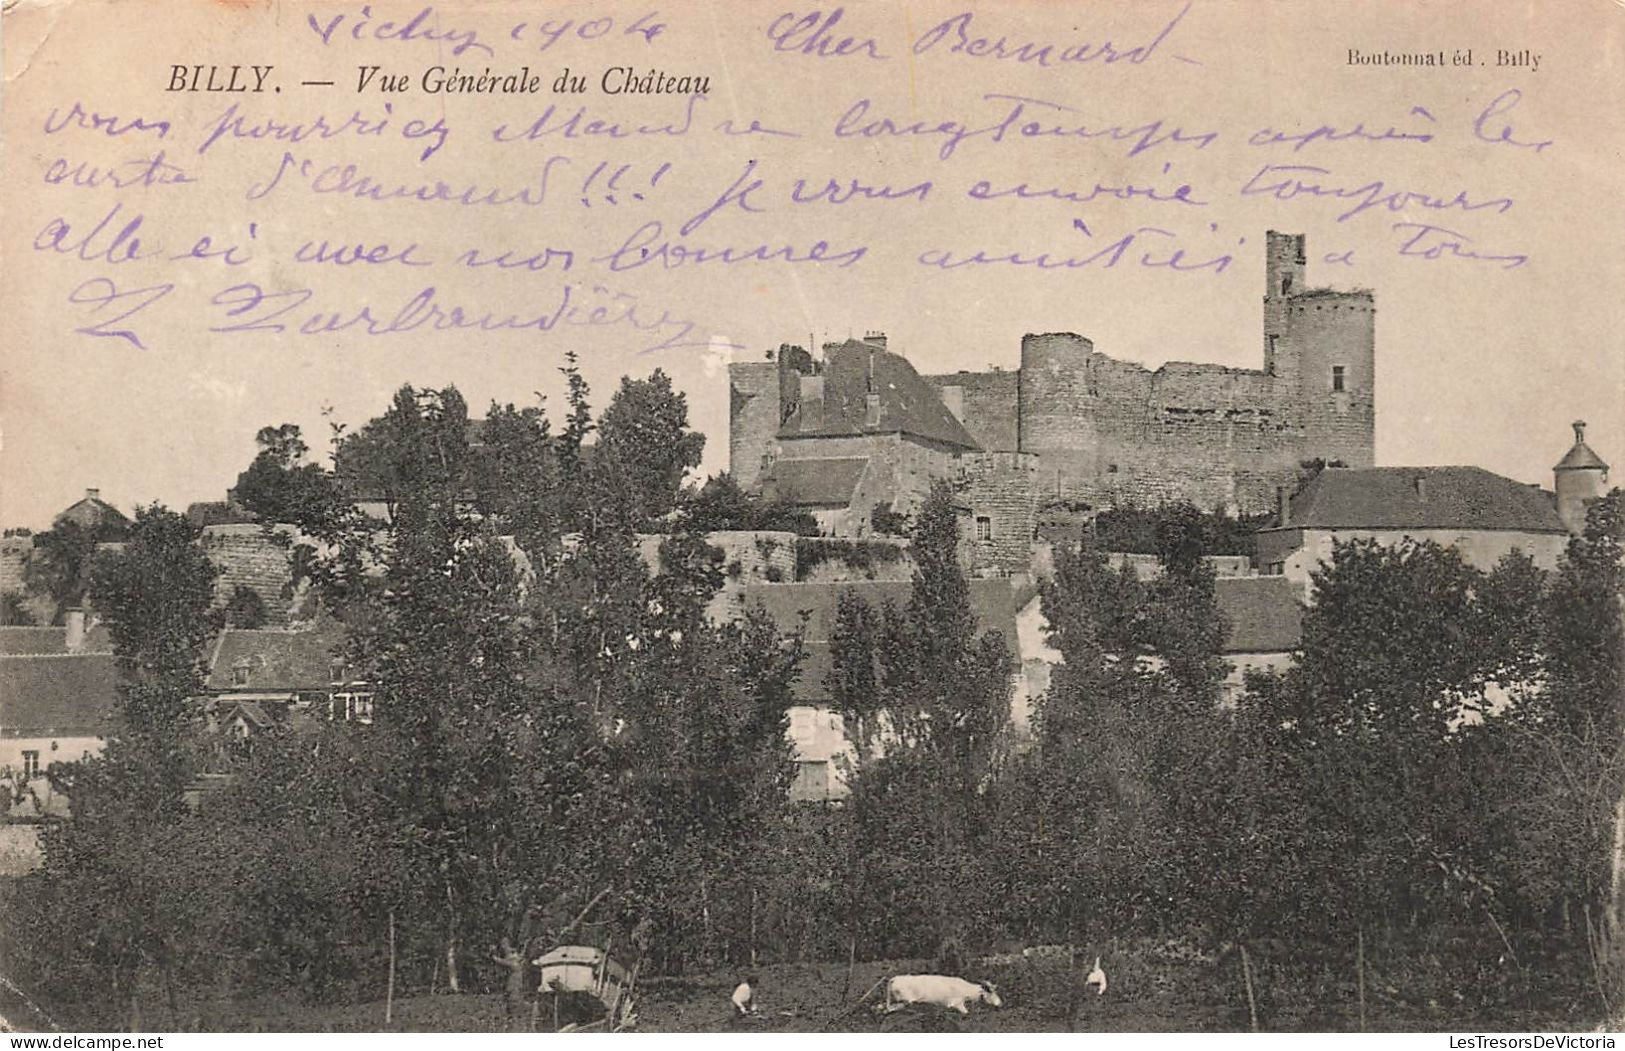 Vichy 1904 Cher Bernard -
BILLY. — Vue Générale du Château
Boutonnat éd . Billy
vous pourriez attendre longtemps après les
cartes d'Armand !!! Je vous envoie toujours
celle ci avec nos bonnes amitiés a tous
LesTresorsDeVictoria